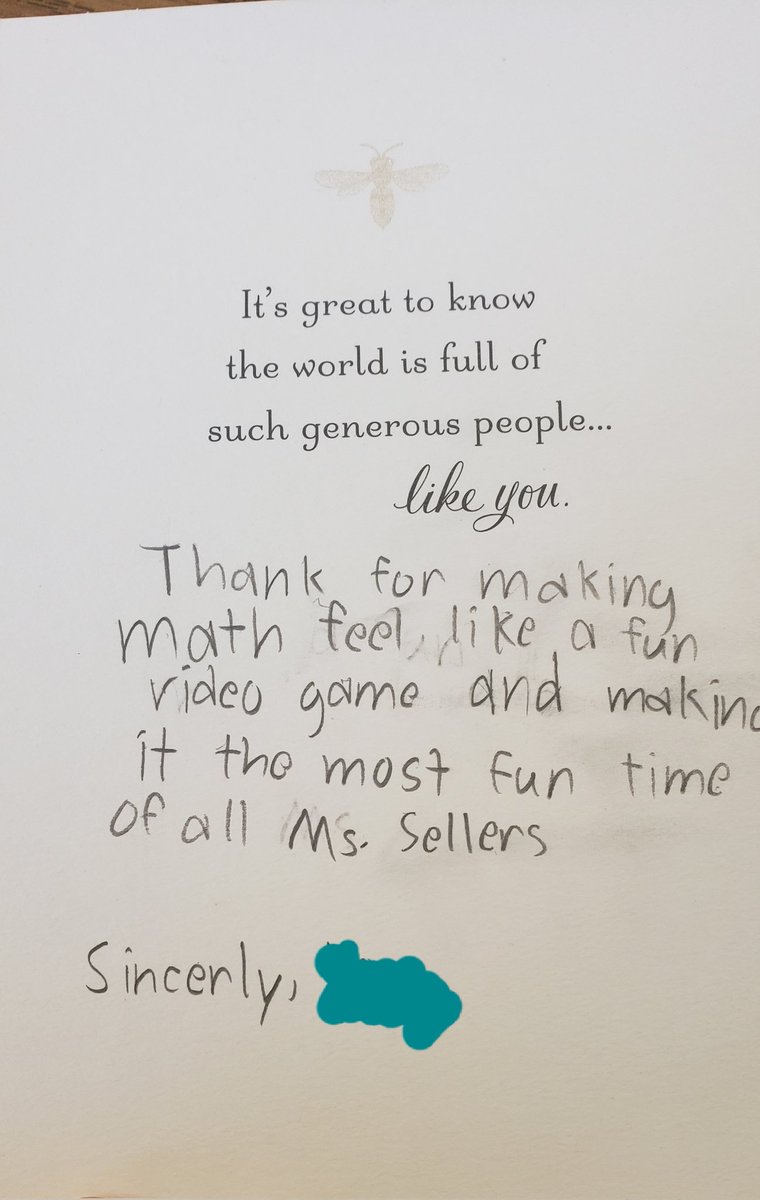 It's great to know
the world is full of
such generous people...
like you.
Thank for making
math feel like a fun
video game and making
it the most fun time
of all Ms. Sellers
Sincerly,